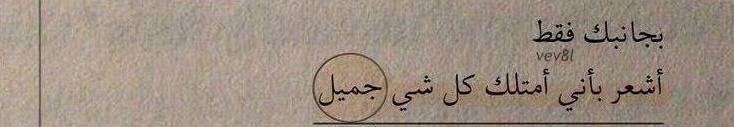 بجانبك فقط
vev8l
أشعر بأني أمتلك كل شي جميل